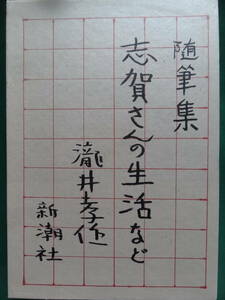 随筆集
志賀さんの生活など
瀧井孝作
新潮社